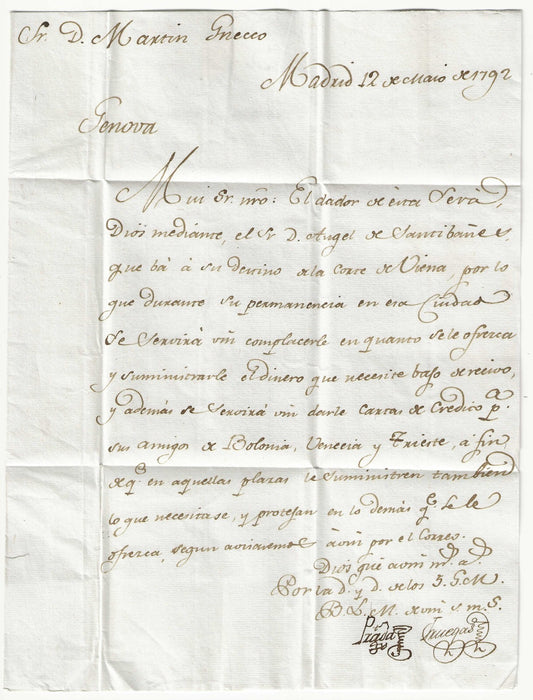 Sr. D. Martin Gnecco
Madrid 12 de Maio de 1792
Genova
Mui Sr. nro: El dador de esta Será,
Dios mediante, el Sr D. Angel de Santibañes,
que bá à su destino de la Corte de Viena, por lo
que durante su permanencia en esa Ciudad
se Servirá vm complacerle en quanto se le ofrezca
y suministrarle el dinero que necesite baxo de recivo,
y además se Servirá vm darle Cartas de Credito pa.
sus amigos de Bolonia, Venecia y Trieste, á fin
de q.e en aquellas plazas le Suministren tambien
lo que necesitase, y protejan en lo demás q.e Se le
ofrezca, segun avisaremos à vm por el Correo.
Dios gue à vm ms. as.
Por la D. y D. de los 5. G. M.
B. L. M. de vm s. m. S.